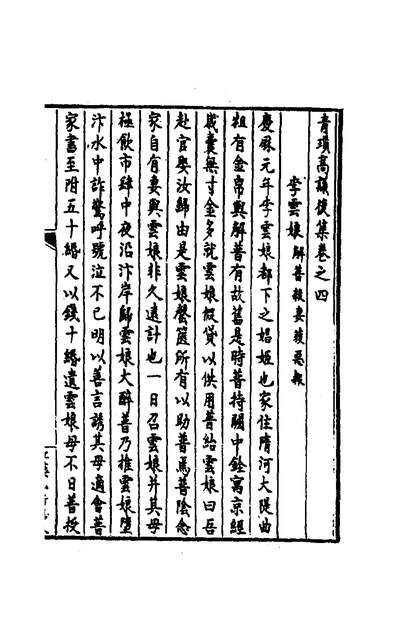 青瑣高議後集卷之四
李雲娘 解普殺妻獲惡報
慶曆元年李雲娘都下之娼姬也家住隋河大隄曲
粗有金帛與解普有故舊是時普待闕中銓寓京經
歲囊無寸金多就雲娘假貸以供用普紿雲娘曰吾
赴官娶汝歸由是雲娘罄篋所有以助普焉普陰念
家自有妻與雲娘非久遠計也一日召雲娘并其母
極飲市肆中夜沿汴岸歸雲娘大醉普乃推雲娘墮
汴水中詐驚呼號泣不已明以善言誘其母適會普
家書至附五十緡又以錢十緡遣雲娘母不日普授